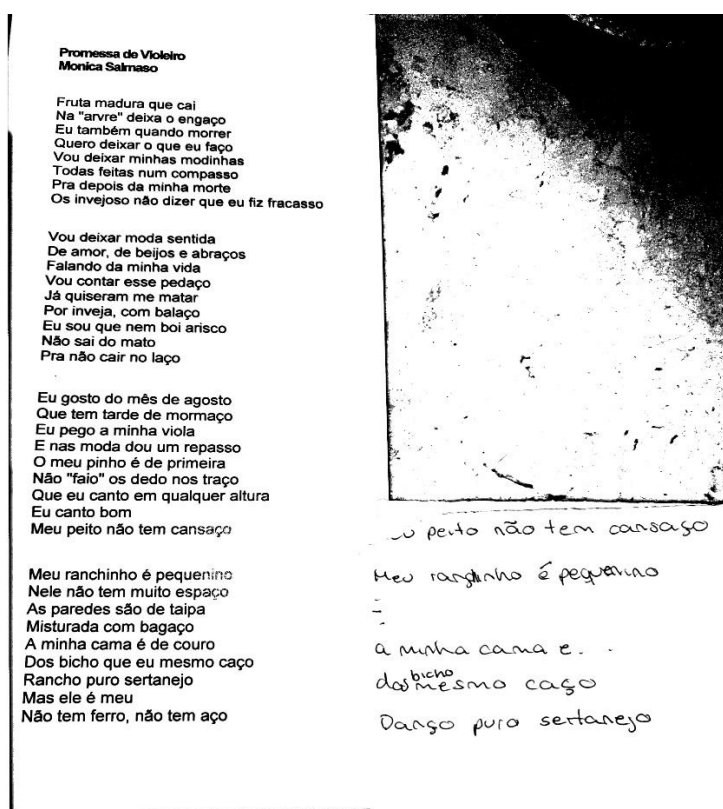 Promessa de Violeiro
Monica Salmaso
Fruta madura que cai
Na "arvre" deixa o engaço
Eu também quando morrer
Quero deixar o que eu faço
Vou deixar minhas modinhas
Todas feitas num compasso
Pra depois da minha morte
Os invejoso não dizer que eu fiz fracasso
Vou deixar moda sentida
De amor, de beijos e abraços
Falando da minha vida
Vou contar esse pedaço
Já quiseram me matar
Por inveja, com balaço
Eu sou que nem boi arisco
Não sai do mato
Pra não cair no laço
Eu gosto do mês de agosto
Que tem tarde de mormaço
Eu pego a minha viola
E nas moda dou um repasso
O meu pinho é de primeira
Não "faio" os dedo nos traço
Que eu canto em qualquer altura
Eu canto bom
Meu peito não tem cansaço
Meu ranchinho é pequenino
Nele não tem muito espaço
As paredes são de taipa
Misturada com bagaço
A minha cama é de couro
Dos bicho que eu mesmo caço
Rancho puro sertanejo
Mas ele é meu
Não tem ferro, não tem aço
peito não tem cansaço
Meu ranchinho é pequenino
a minha cama e . .
dos bicho mesmo caço
puro sertanejo